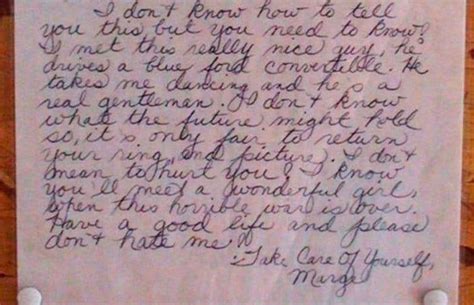 I don't know how to tell
you this but you need to know!
I met this really nice guy, he
drives a blue ford convertible. He
takes me dancing and he s a
real gentleman. I don't know
what the future might hold
so, it s only fair to return
your ring, and picture. I don't
mean to hurt you! I know
you'll meet a wonderful girl,
when this horrible war is over.
Have a good life and please
don't hate me!!
Take Care Of Yourself,
Marge